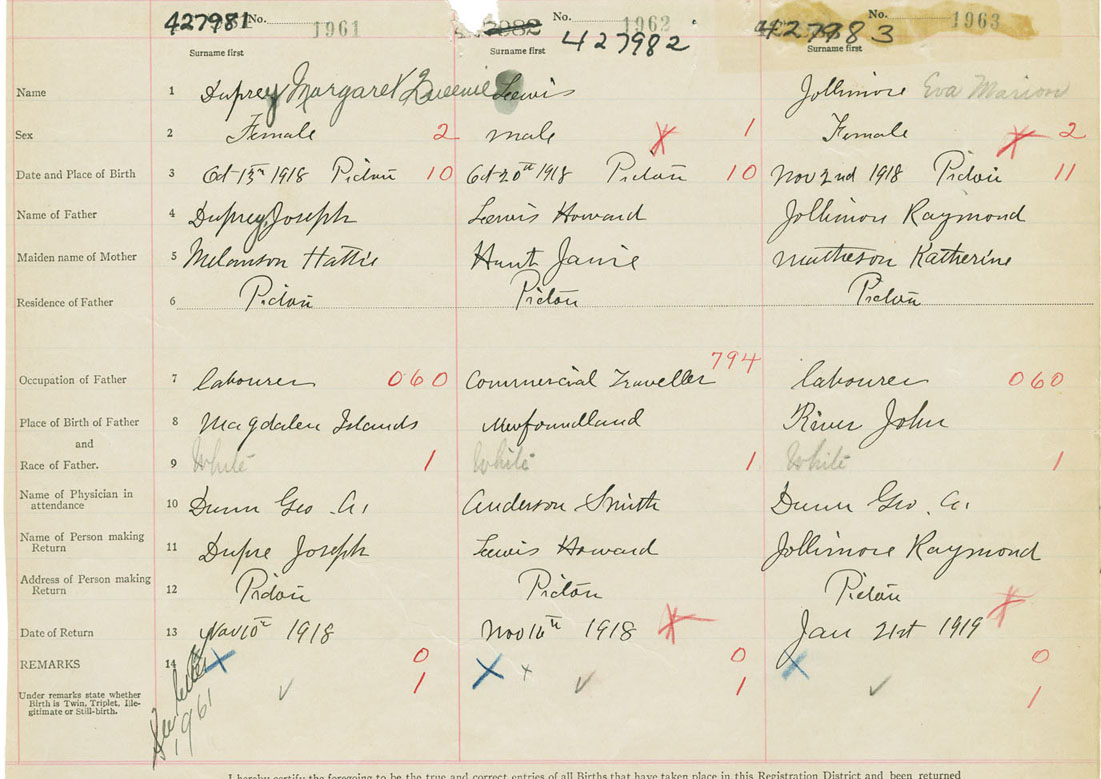 427981 No. 1961 2982 No. 1962 427983 No. 1963
Surname first Surname first 427982 Surname first
Name 1 Duprey Margaret Queenie Lewis Jollimore Eva Marion
Sex 2 Female 2 male 1 Female 2
Date and Place of Birth 3 Oct 13th 1918 Pictou 10 Oct 20th 1918 Pictou 10 Nov 2nd 1918 Pictou 11
Name of Father 4 Duprey Joseph Lewis Howard Jollimore Raymond
Maiden name of Mother 5 Melanson Hattie Hunt Janie Matheson Katherine
Residence of Father 6 Pictou Pictou Pictou
794
Occupation of Father 7 labourer 060 Commercial Traveller labourer 060
Place of Birth of Father 8 Magdalen Islands Newfoundland River John
and
Race of Father. 9 White 1 White 1 White 1
Name of Physician in
attendance 10 Dunn Geo. A. Anderson Smith Dunn Geo. A.
Name of Person making
Return 11 Dupre Joseph Lewis Howard Jollimore Raymond
Address of Person making
Return 12 Pictou Pictou Pictou
Date of Return 13 Nov 10th 1918 Nov 16th 1918 Jan 21st 1919
REMARKS 14 0 0 0
Under remarks state whether
Birth is Twin, Triplet, Ille-
gitimate or Still-birth. 1 1 1
See letter
1961
I hereby certify the foregoing to be the true and correct entries of all Births that have taken place in this Registration District and been returned